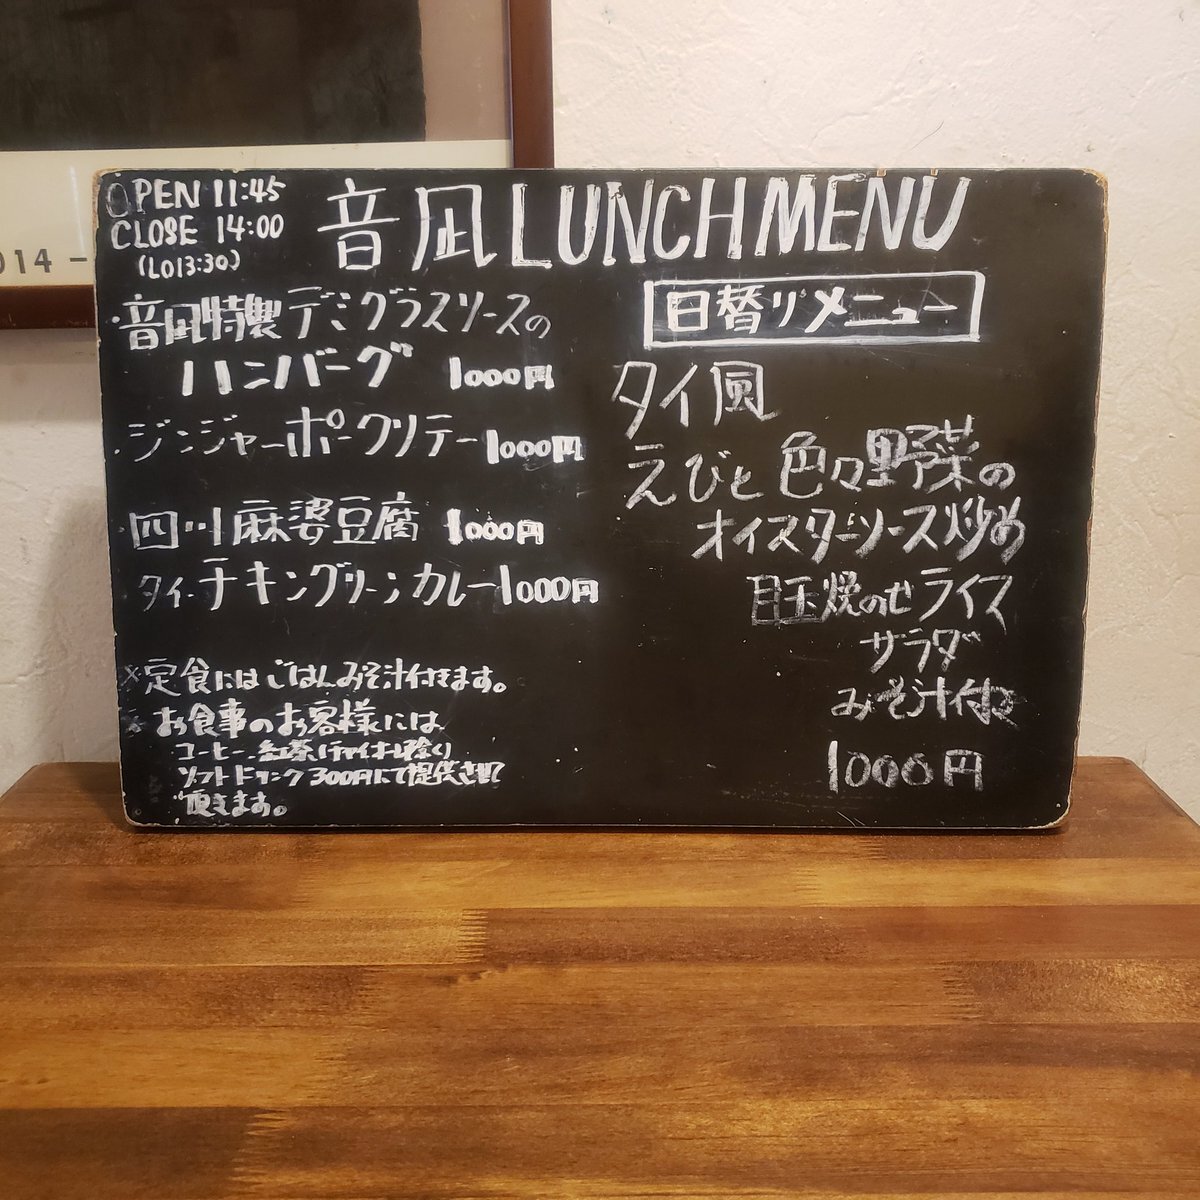 014 -
OPEN 11:45
CLOSE 14:00
(LO13:30)
音凪LUNCH MENU
・音凪特製デミグラスソースの
ハンバーグ 1000円
・ジンジャーポークソテー 1000円
・四川麻婆豆腐 1000円
タイ・チキングリーンカレー 1000円
※定食にはごはんみそ汁付きます。
※お食事のお客様には
コーヒー、紅茶(チャイオーレ除く)
ソフトドリンク300円にて提供させて
頂きます。
日替りメニュー
タイ風
えびと色々野菜の
オイスターソース炒め
目玉焼のせライス
サラダ
みそ汁付
1000円